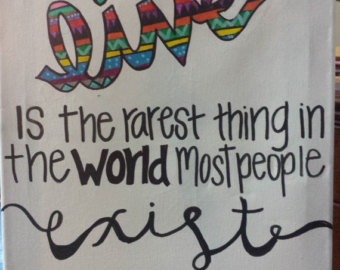 live
is the rarest thing in
the world most people
exist